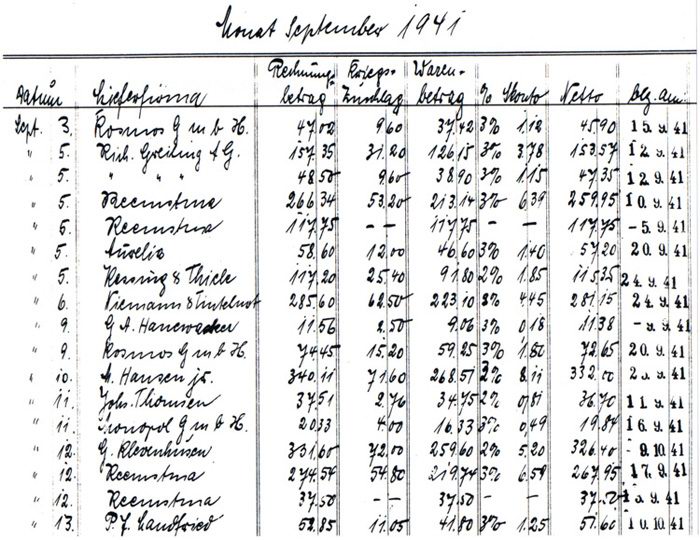 Monat September 1941
Datum Lieferfirma Rechnungsbetrag Kriegs-Zuschlag Waren-betrag % Skonto Netto bez. am:
Sept. 3. Kosmos G m b H. 47.02 9.60 37.42 3% 1.12 45.90 15.9.41
" 5. Rich. Greiling A G. 157.35 31.20 126.15 3% 3.78 153.57 12.9.41
" 5. " " " 48.50 9.60 38.90 3% 1.15 47.35 12.9.41
" 5. Reemtsma 266.34 53.20 213.14 3% 6.39 259.95 10.9.41
" 5. Reemtsma 117.75 - - 117.75 - - 117.75 -5.9.41
" 5. Aurelia 58.60 12.00 46.60 3% 1.40 57.20 20.9.41
" 5. & Thiele 117.20 25.40 91.80 2% 1.85 115.35 24.9.41
" 6. Niemann & 285.60 62.50 223.10 2% 4.45 281.15 24.9.41
" 9. G A. Hanewacker 11.56 2.50 9.06 3% 0.18 11.38 -9.9.41
" 9. Kosmos G m b H. 74.45 15.20 59.25 3% 1.80 72.65 20.9.41
" 10. A. Hansen jr. 340.11 71.60 268.51 3% 8.11 332.00 9.41
" 11. Johs. Thomsen 37.51 2.76 34.75 2% 0.81 36.70 11.9.41
" 11. Monopol G m b H. 20.33 4.00 16.33 3% 0.49 19.84 16.9.41
" 12. G. 331.60 72.00 259.60 2% 5.20 326.40 -9.10.41
" 12. Reemtsma 274.54 54.80 219.74 3% 6.59 267.95 17.9.41
" 12. Reemtsma 37.50 - - 37.50 - - 37.50 9.41
" 13. P. J. Landfried 52.85 11.05 41.80 3% 1.25 51.60 10.10.41